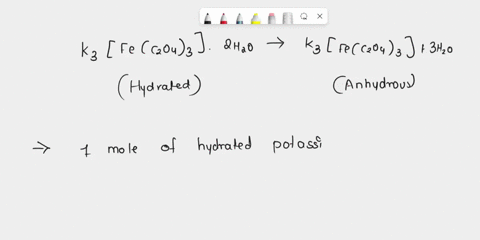 K3 [Fe(C2O4)3]. 2H2O → K3 [Fe(C2O4)3] + 3H2O
(Hydrated) (Anhydrous)
→ 1 mole of hydrated potossi